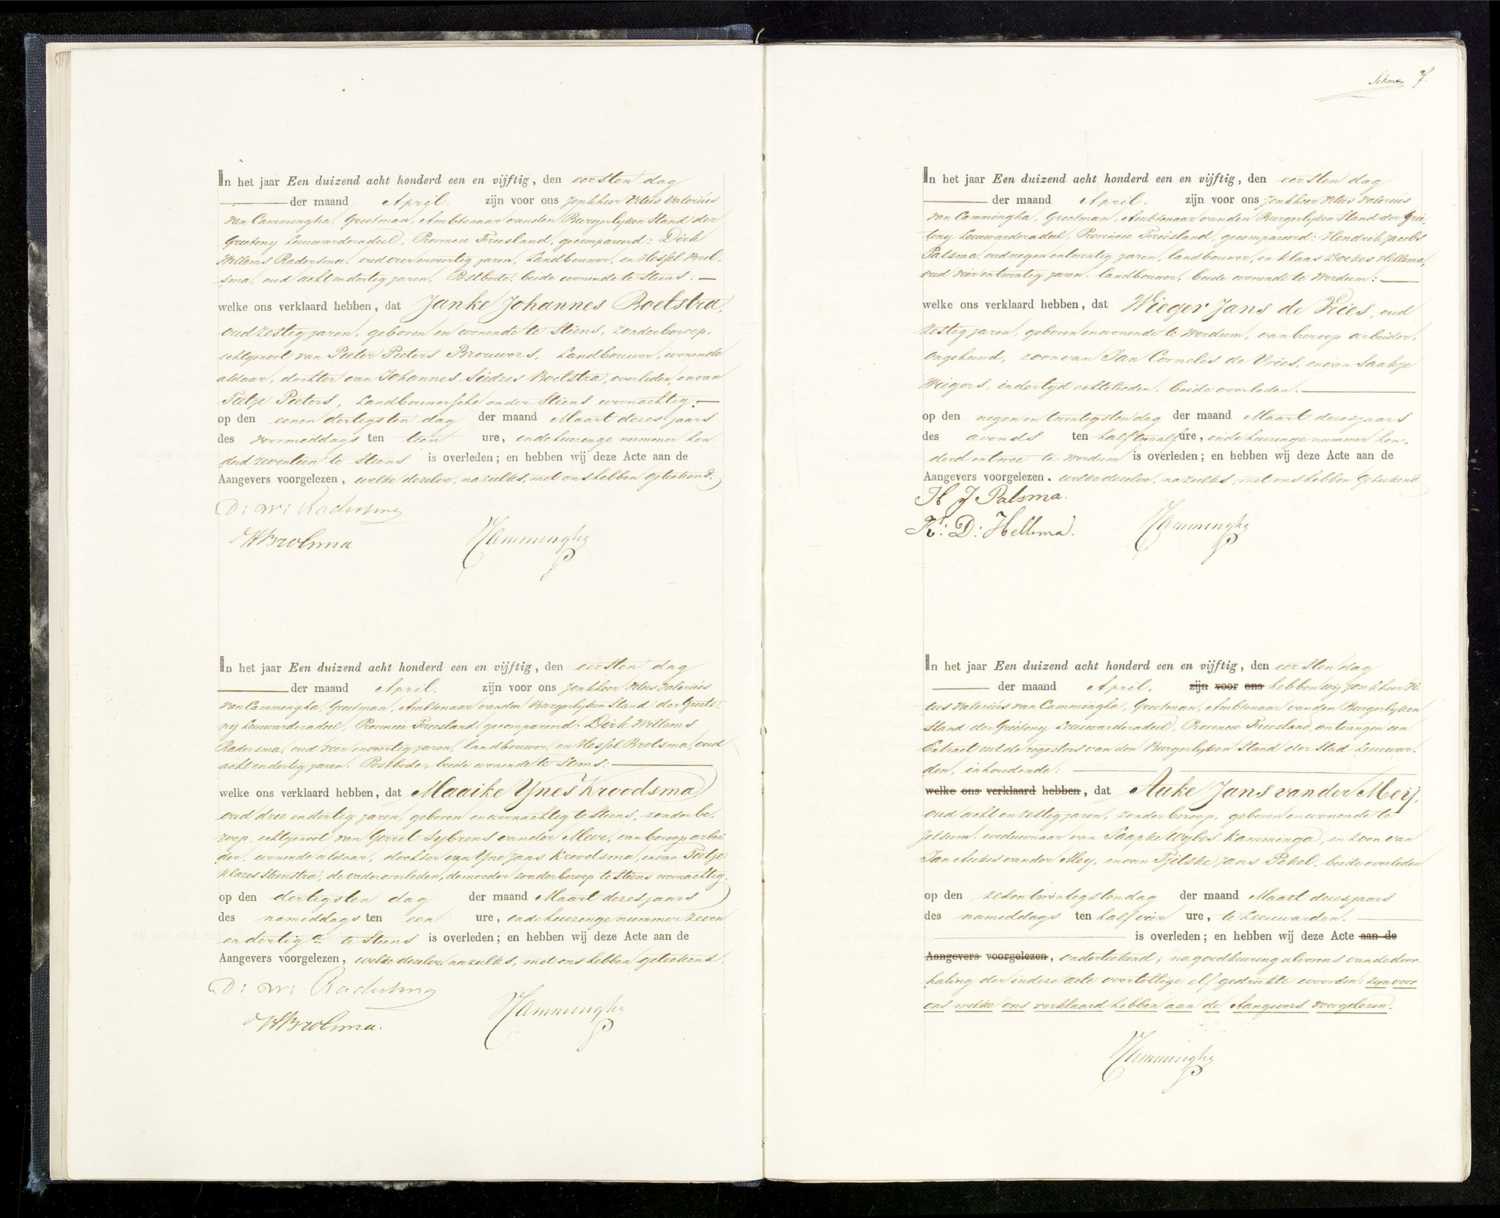 In het jaar Een duizend acht honderd een en vijftig, den eersten dag
der maand April. zijn voor ons Jonkheer Vitus Valerius
van Cammingha, Grietman, Ambtenaar van den Burgerlijken Stand der
Grieteny Leeuwarderadeel, Provincie Friesland, gecompareerd: Dirk
Willems Radersma, oud veertig jaren, Landbouwer, en Hessel Brol-
sma, oud acht en dertig jaren, Postbode, beide wonende te Stiens.
welke ons verklaard hebben, dat Janke Johannes Boelstra,
oud zestig jaren, geboren en wonende te Stiens, zonder beroep,
echtgenoot van Pieter Pieters Brouwers, Landbouwer, wonende
aldaar, dochter van Johannes Boelstra, overleden, en van
Pieters, Landbouwersche onder Stiens woonachtig.
op den eenen dertigsten dag der maand Maart dezes jaars
des voormiddags ten tien ure, in de huizinge nummer hon
derd zeventien te Stiens is overleden; en hebben wij deze Acte aan de
Aangevers voorgelezen, welke dezelve, na zulks, met ons hebben geteekend.
D: W: Radersma
H Brolsma Cammingha
In het jaar Een duizend acht honderd een en vijftig, den eersten dag
der maand April. zijn voor ons Jonkheer Vitus Valerius
van Cammingha, Grietman, Ambtenaar van den Burgerlijken Stand der Griete-
ny Leeuwarderadeel, Provincie Friesland, gecompareerd: Dirk Willems
Radersma, oud veertig jaren, landbouwer, en Hessel Brolsma, oud
acht en dertig jaren, Postbode, beide wonende te Stiens.
welke ons verklaard hebben, dat Maaike Ynes Kroodsma
oud drie en dertig jaren, geboren en woonachtig te Stiens, zonder be-
roep, echtgenoot van Gerrit Sybrens van der Meer, van beroep arbei-
der, wonende aldaar, dochter van Yne Jans Kroodsma, en van
Klazes Steenstra, de vader overleden, de moeder zonder beroep te Stiens woonachtig.
op den dertigsten dag der maand Maart dezes jaars
des namiddags ten een ure, in de huizinge nummer zeven
en dertig te Stiens is overleden; en hebben wij deze Acte aan de
Aangevers voorgelezen, welke dezelve na zulks, met ons hebben geteekend.
D: W: Radersma
H Brolsma. Cammingha
7.
In het jaar Een duizend acht honderd een en vijftig, den eersten dag
der maand April. zijn voor ons Jonkheer Vitus Valerius
van Cammingha, Grietman, Ambtenaar van den Burgerlijken Stand der Grie-
teny Leeuwarderadeel, Provincie Friesland, gecompareerd: Hendrik Jacobs
Palsma, oud negen en twintig jaren, landbouwer, en Klaas Hellema,
oud jaren, landbouwer, beide wonende te Wirdum:
welke ons verklaard hebben, dat Wieger Jans de Vries, oud
zestig jaren, geboren en wonende te Wirdum, van beroep arbeider,
ongehuwd, zoon van Jan Cornelis de Vries, en van Saakje
Wiegers, in der tijd echtelieden, beide overleden.
op den negen en twintigsten dag der maand Maart dezes jaars
des avonds ten half twaalf ure, in de huizinge nummer hon-
derd en twee te Wirdum is overleden; en hebben wij deze Acte aan de
Aangevers voorgelezen, welke dezelve, na zulks, met ons hebben geteekend.
H J Palsma.
K: D: Hellema. Cammingha
In het jaar Een duizend acht honderd een en vijftig, den eersten dag
der maand April. zijn voor ons hebben wij Jonkheer Vi-
tus Valerius van Cammingha, Grietman, Ambtenaar van den Burgerlijken
Stand der Grieteny Leeuwarderadeel, Provincie Friesland, ontvangen een
Extract uit de registers van den Burgerlijken Stand der Stad Leeuwar-
den, inhoudende:
welke ons verklaard hebben, dat Auke Jans van der Meij,
oud acht en zestig jaren, zonder beroep, geboren en wonende te
Jelsum, weduwnaar van Wybes Kamminga, en zoon van
Jan Aukes van der Meij, en van Tjitske Jans Pekel, beide overleden
op den zeven twintigsten dag der maand Maart dezes jaars
des namiddags ten half vier ure, te Leeuwarden.
is overleden; en hebben wij deze Acte aan de
Aangevers voorgelezen, onderteekend, na goedkeuring alvorens van de door-
haling der in deze acte overtollige elf gedrukte woorden zijn voor
ons welke ons verklaard hebben aan de Aangevers voorgelezen.
Cammingha